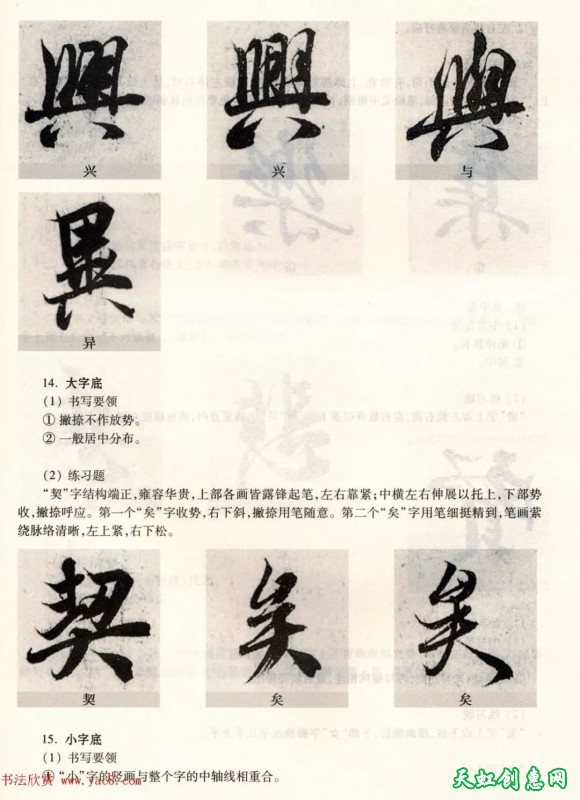 興 興 與
兴 兴 与
異
异
14. 大字底
(1) 书写要领
① 撇捺不作放势。
② 一般居中分布。
(2) 练习题
“契”字结构端正，雍容华贵，上部各画皆露锋起笔，左右靠紧；中横左右伸展以托上，下部势
收，撇捺呼应。第一个“矣”字收势，右下斜，撇捺用笔随意。第二个“矣”字用笔细挺精到，笔画萦
绕脉络清晰，左上紧，右下松。
契 矣 矣
契 矣 矣
15. 小字底
(1) 书写要领
① “小”字的竖画与整个字的中轴线相重合。
书法欣赏 www.yac8.com
天虹创意网